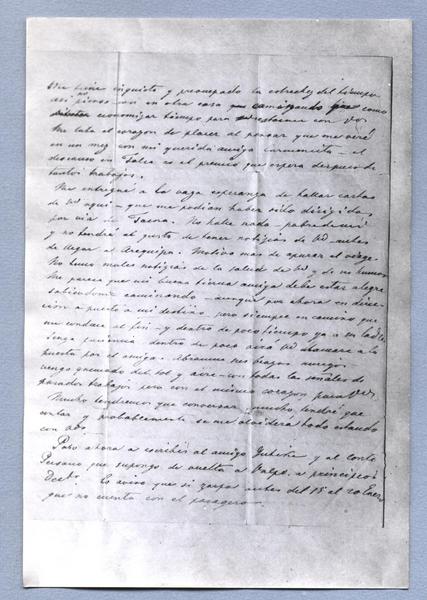 Me tiene inquieto y preocupado la estrechez del tiempo
asi no pienso con en otra cosa que caminando que como
economizar tiempo para estarme con Vds
Me late el corazon de placer al pensar que me veré
en un mes con mi querida amiga Carmencita — el
descanso en Talca es el premio que espera despues de
tantos trabajos.
Me entregué a la vaga esperanza de hallar cartas
de Vd aqui — que me podian haber sido dirigidas
por via de Tacna. No hallé nada — pobre de mi!
y no tendré el gusto de tener noticias de Vd antes
de llegar a Arequipa. Motivo mas de apurar el viage.
No tuve malas noticias de la salud de Vd y de su humor
Me parece que mi buena tierna amiga debe estar alegre
sabiendome caminando — aunque por ahora en direc-
cion opuesta a mi destino pero siempre en camino que
me conduce al fin — y dentro de poco tiempo ya a su lado
Tenga paciencia dentro de poco oirá Vd llamar a la
puerta por el amigo. Abranme sus brazos amigos
vengo quemado del sol y aire con todas las señales de
pasados trabajos pero con el mismo corazon para Vds.
Mucho tendremos que conversar mucho tendré que
contar y probablemente se me olvidará todo estando
con Vds.
Paso ahora a escribir al amigo Gutike y al conte
Pesano que supongo de vuelta a Valpo. a principios
Decbr. Le aviso que si zarpa antes del 15 al 20 Enero
que no cuenta con el pasagero.